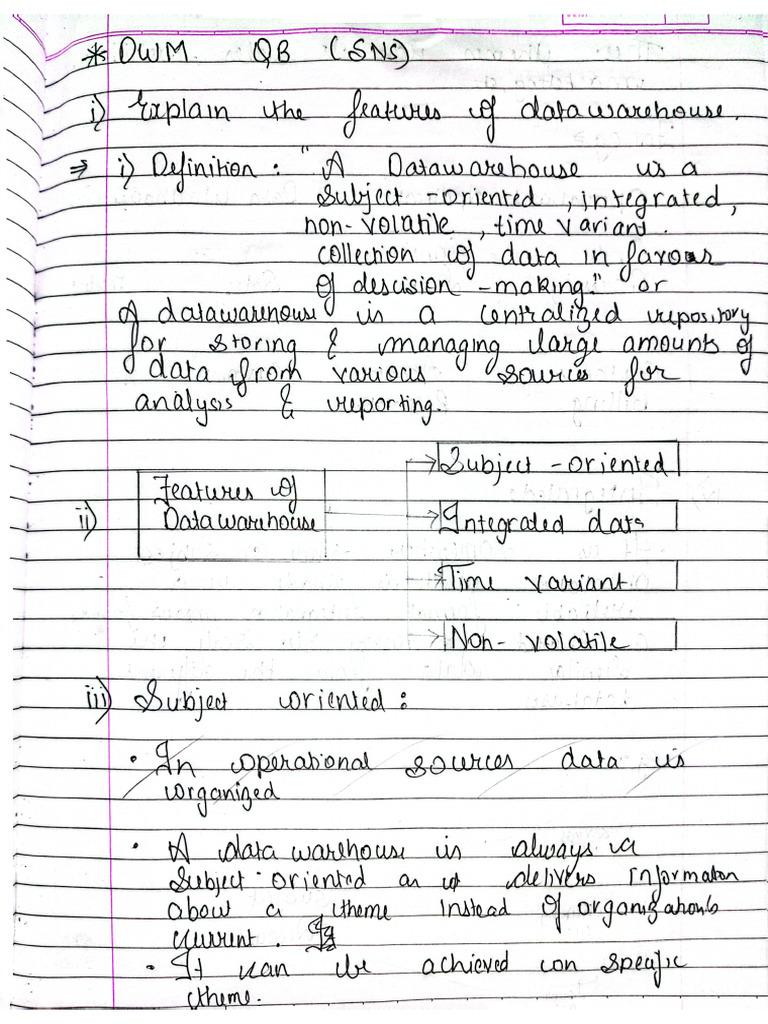 * DWM QB (SNS)
i) Explain the features of datawarehouse.
⇒ i) Definition: "A Datawarehouse is a
Subject-oriented, integrated,
non-volatile, time variant
collection of data in favour
of descision-making." or
A datawarehouse is a centralized repository
for storing & managing large amounts of
data from various sources for
analysis & reporting.
Subject-oriented
Features of
ii) Datawarehouse
Integrated data
Time variant
Non-volatile
iii) Subject oriented:
• In operational sources data is
organized
• A data warehouse is always a
Subject-oriented as it delivers Information
about a theme instead of organization's
current.
• It can be achieved on specific
theme.